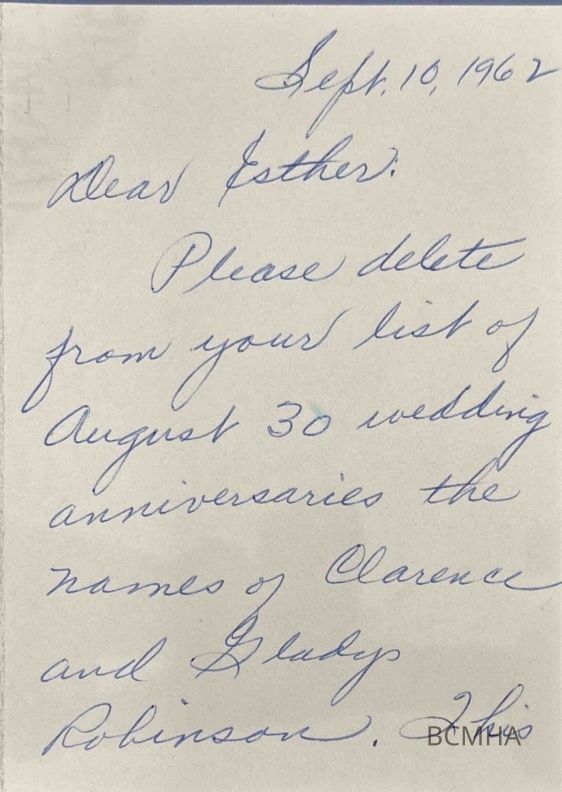 Sept. 10, 1962
Dear Esther:
Please delete
from your list of
August 30 wedding
anniversaries the
names of Clarence
and Gladys
Robinson. This
BCMHA